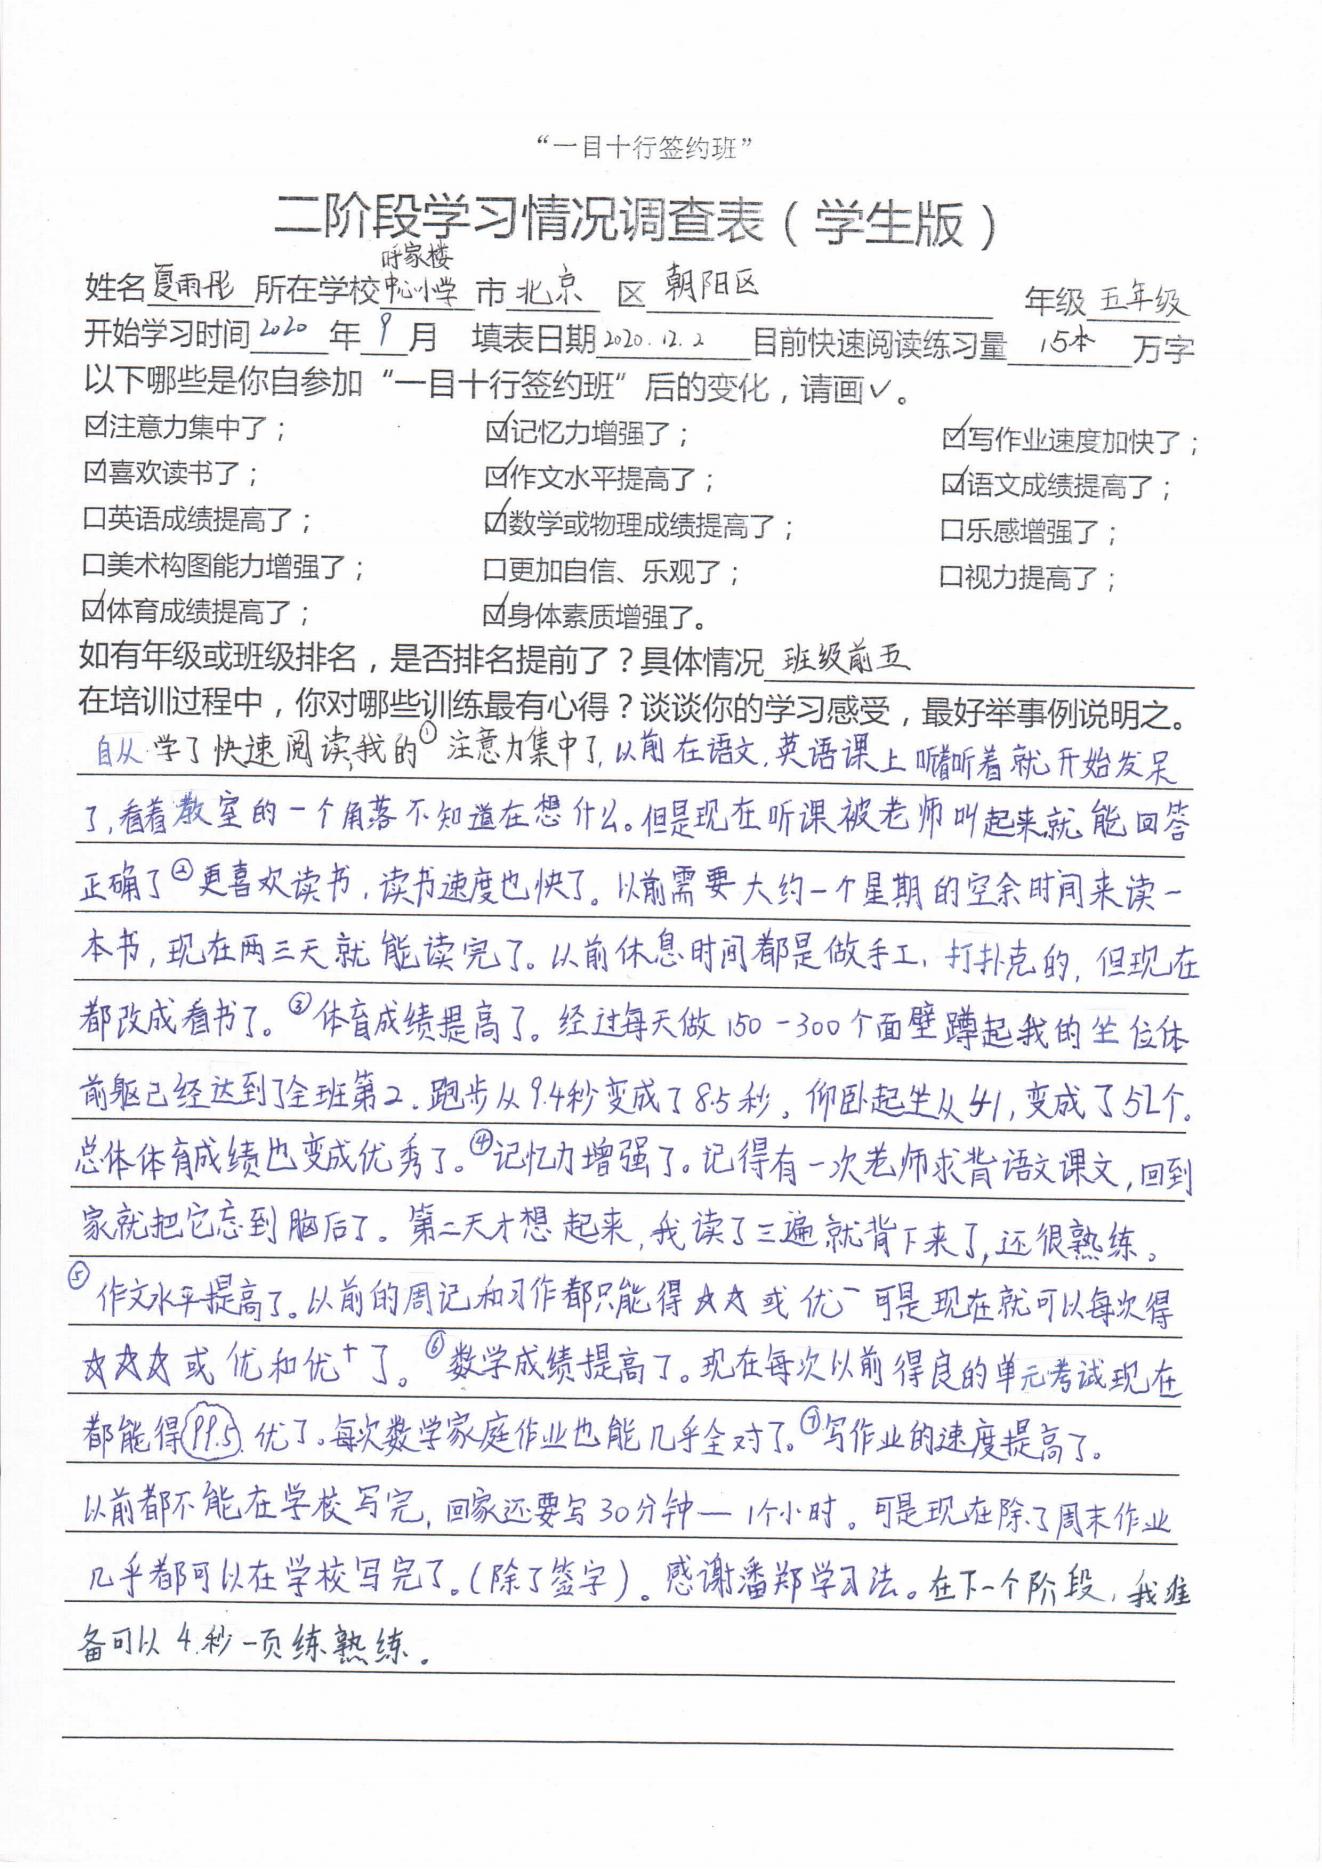 “一目十行签约班”
二阶段学习情况调查表（学生版）
呼家楼
姓名夏雨彤 所在学校中心小学 市北京 区朝阳区 年级五年级
开始学习时间2020年9月 填表日期2020.12.2 目前快速阅读练习量15本万字
以下哪些是你自参加“一目十行签约班”后的变化，请画✓。
☑注意力集中了； ☑记忆力增强了； ☑写作业速度加快了；
☑喜欢读书了； ☑作文水平提高了； ☑语文成绩提高了；
口英语成绩提高了； ☑数学或物理成绩提高了； 口乐感增强了；
口美术构图能力增强了； 口更加自信、乐观了； 口视力提高了；
☑体育成绩提高了； ☑身体素质增强了。
如有年级或班级排名，是否排名提前了？具体情况 班级前五
在培训过程中，你对哪些训练最有心得？谈谈你的学习感受，最好举事例说明之。
自从学了快速阅读,我的①注意力集中了,以前在语文,英语课上听着听着就开始发呆
了,看着教室的一个角落不知道在想什么。但是现在听课被老师叫起来,就能回答
正确了②更喜欢读书,读书速度也快了。以前需要大约一个星期的空余时间来读一
本书,现在两三天就能读完了。以前休息时间都是做手工、打扑克的,但现在
都改成看书了。③体育成绩提高了。经过每天做150-300个面壁蹲起我的坐位体
前躯已经达到了全班第2.跑步从9.4秒变成了8.5秒。仰卧起坐从41,变成了52个。
总体体育成绩也变成优秀了。④记忆力增强了。记得有一次老师求背语文课文,回到
家就把它忘到脑后了。第二天才想起来,我读了三遍就背下来了,还很熟练。
⑤作文水平提高了。以前的周记和习作都只能得☆☆或优⁻可是现在就可以每次得
☆☆☆或优和优⁺了。⑥数学成绩提高了。现在每次以前得良的单元考试现在
都能得99.5.优了。每次数学家庭作业也能几乎全对了。⑦写作业的速度提高了。
以前都不能在学校写完,回家还要写30分钟—1个小时。可是现在除了周末作业
几乎都可以在学校写完了。(除了签字)。感谢潘郑学习法。在下一个阶段,我准
备可以4秒一页练熟练。